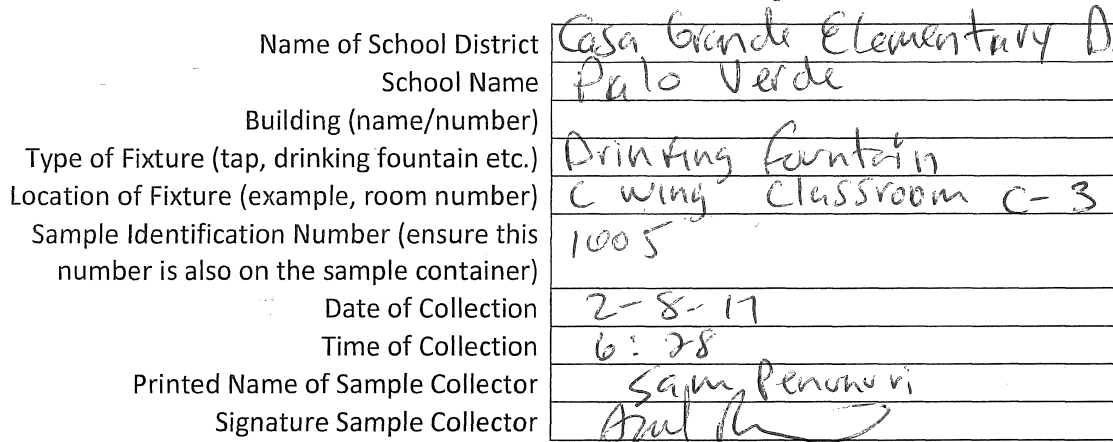 Name of School District Casa Grande Elementary D
School Name Palo Verde
Building (name/number)
Type of Fixture (tap, drinking fountain etc.) Drinking fountain
Location of Fixture (example, room number) C wing Classroom C-3
Sample Identification Number (ensure this 1005
number is also on the sample container)
Date of Collection 2-8-17
Time of Collection 6:28
Printed Name of Sample Collector Sam
Signature Sample Collector